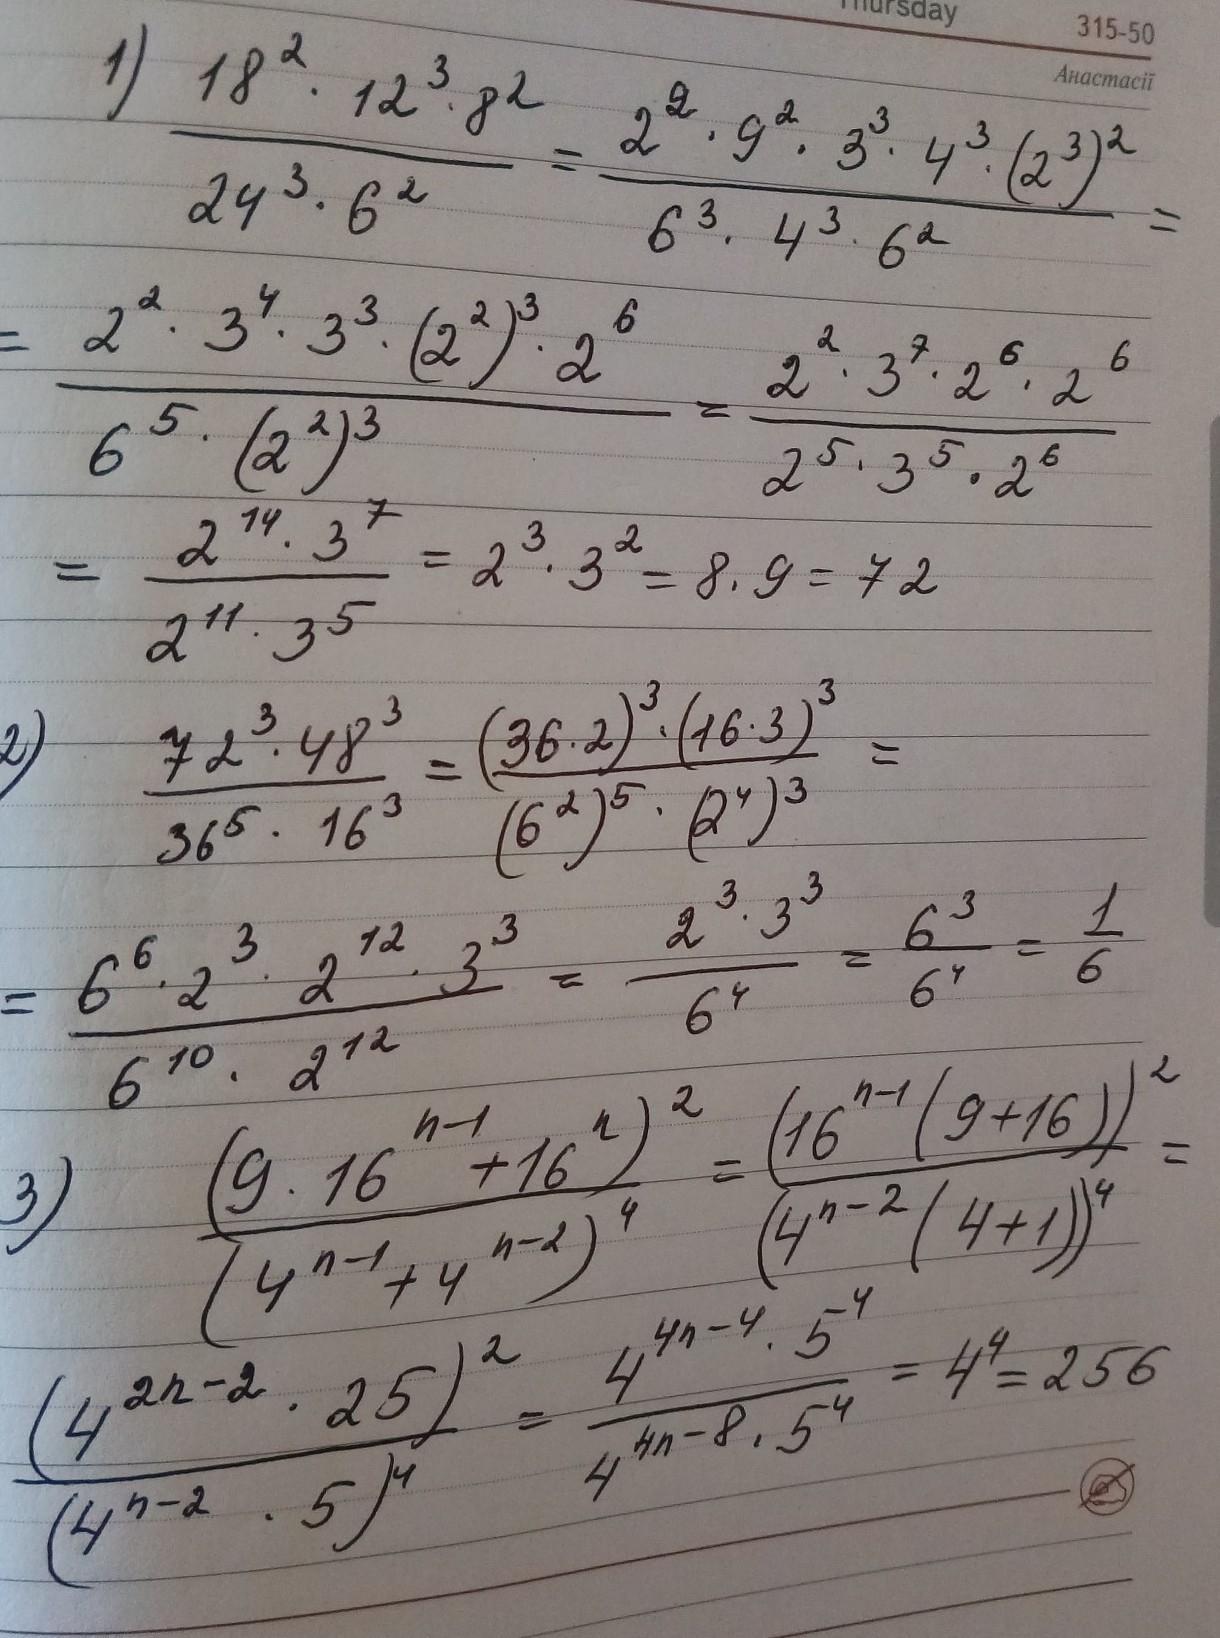 Thursday 315-50
Анастасії
1) (18² · 12³ · 8²)/(24³ · 6²) = (2² · 9² · 3³ · 4³ · (2³)²)/(6³ · 4³ · 6²) =
= (2² · 3⁴ · 3³ · (2²)³ · 2⁶)/(6⁵ · (2²)³) = (2² · 3⁷ · 2⁶ · 2⁶)/(2⁵ · 3⁵ · 2⁶)
= (2¹⁴ · 3⁷)/(2¹¹ · 3⁵) = 2³ · 3² = 8 · 9 = 72
2) (72³ · 48³)/(36⁵ · 16³) = ((36 · 2)³ · (16 · 3)³)/((6²)⁵ · (2⁴)³) =
= (6⁶ · 2³ · 2¹² · 3³)/(6¹⁰ · 2¹²) = (2³ · 3³)/6⁴ = 6³/6⁴ = 1/6
3) (9 · 16ⁿ⁻¹ + 16ⁿ)²/(4ⁿ⁻¹ + 4ⁿ⁻²)⁴ = (16ⁿ⁻¹(9+16))²/(4ⁿ⁻²(4+1))⁴ =
(4²ⁿ⁻² · 25)²/(4ⁿ⁻² · 5)⁴ = (4⁴ⁿ⁻⁴ · 5⁴)/(4⁴ⁿ⁻⁸ · 5⁴) = 4⁴ = 256